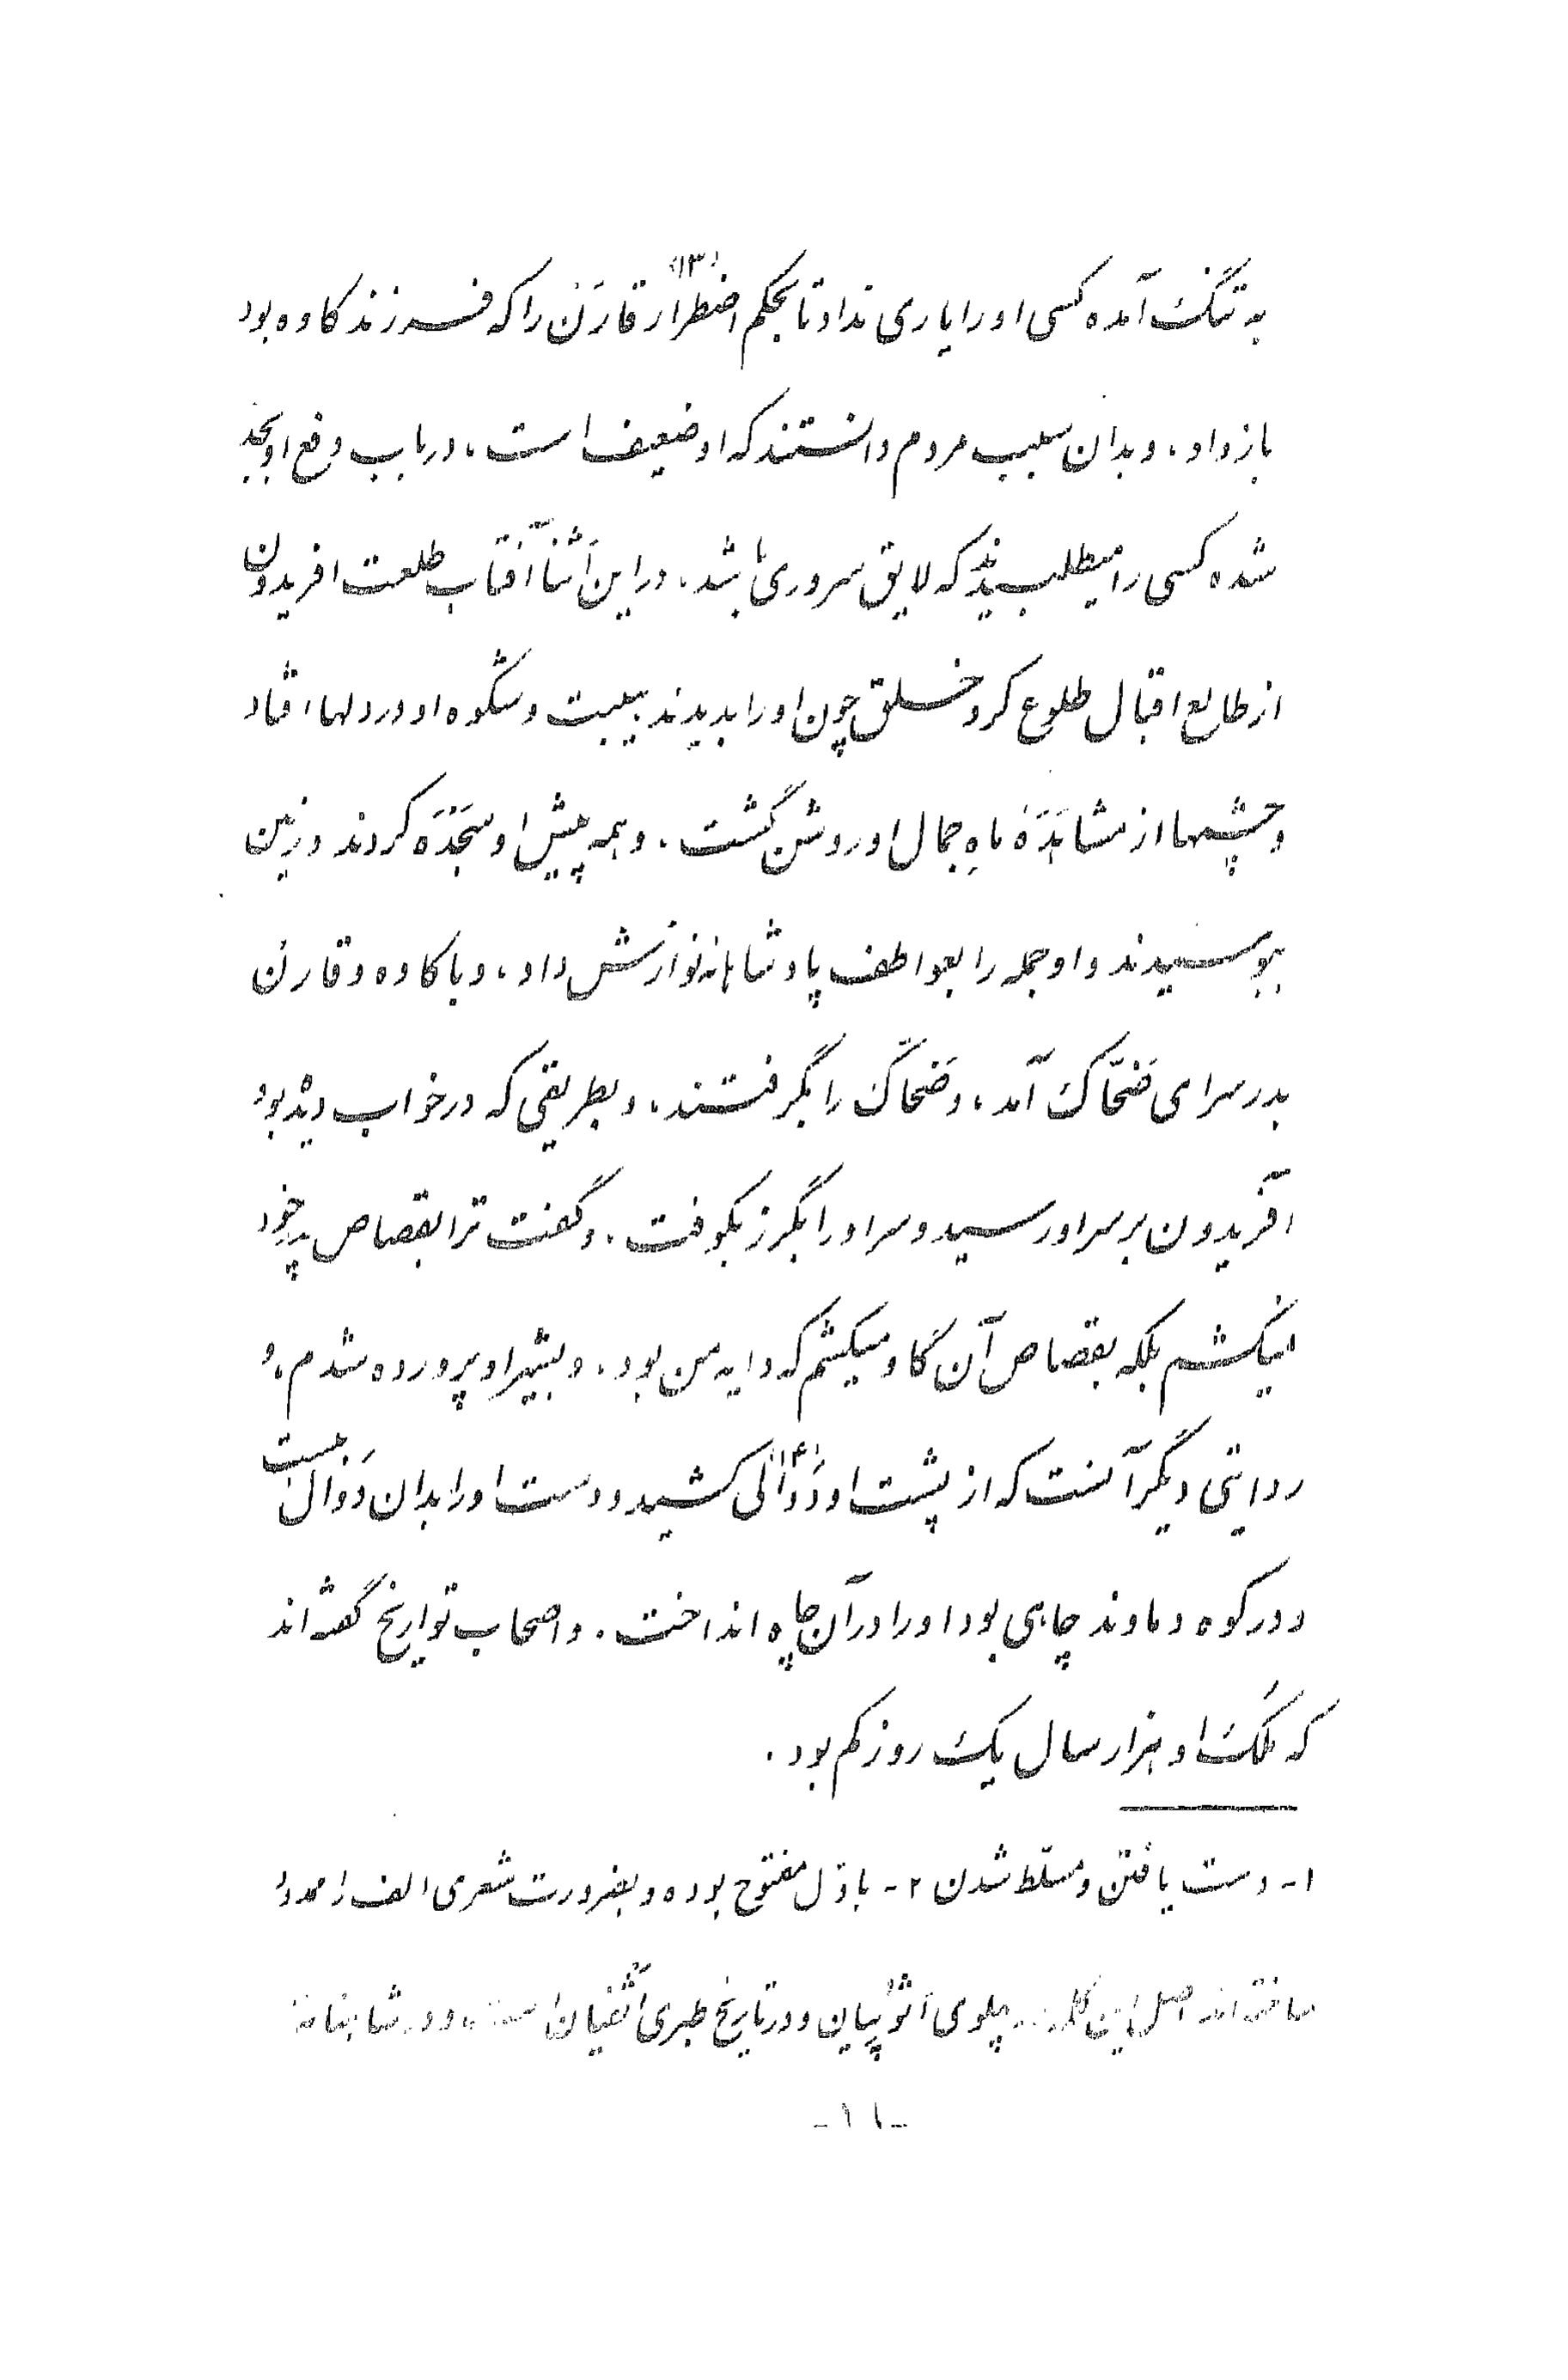 به تنگ آمده کسی او را یاری نداد تا بحکم اضطرار (۱۳) قارَن را که فرزند کاوه بود
باز داد، و بدان سبب مردم دانستند که او ضعیف است، در باب دفع او بجد
شده کسی را میطلبیدند که لایق سروری باشد. در این اَثنا آفتاب طلعت افریدون
از طالع اقبال طلوع کرد خلق چون او را بدیدند هیبت و شکوه او در دلها افتاد
و چشمها از مشاهَدَهٔ ماهِ جمال او روشن گشت. و همه پیش او سَجْدَه کردند و زمین
ببوسیدند و او جمله را بعواطف پادشاهانه نوازش داد، و با کاوه و قارن
بدر سرای ضَحّاک آمد، و ضَحّاک را بگرفتند، و بطریقی که در خواب دیده بود
آفریدون بر سر او رسید و سر او را بگرز بکوفت. و گفت ترا بقصاص پدر خود
نمیکشم بلکه بقصاص آن گاو میکشم که دایه من بود. و بشیر او پرورده شدم، و
روایتی دیگر آنست که از پشت او دَوالی (۱۴) کشید و دست او را بدان دَوال ببست
و در کوه دماوند چاهی بود او را در آن چاه انداخت. و اصحاب تواریخ گفته‌اند
که مُلکَ او هزار سال یک روز کم بود.
۱- دست یافتن و مسلّط شدن ۲- با اوّل مفتوح بوده و بضرورت شعری الف را ممدود
ساخته‌اند اصل این کلمه پهلوی اثوپیان و در تاریخ طبری اثفیان است و در شاهنامه
-۱۱-